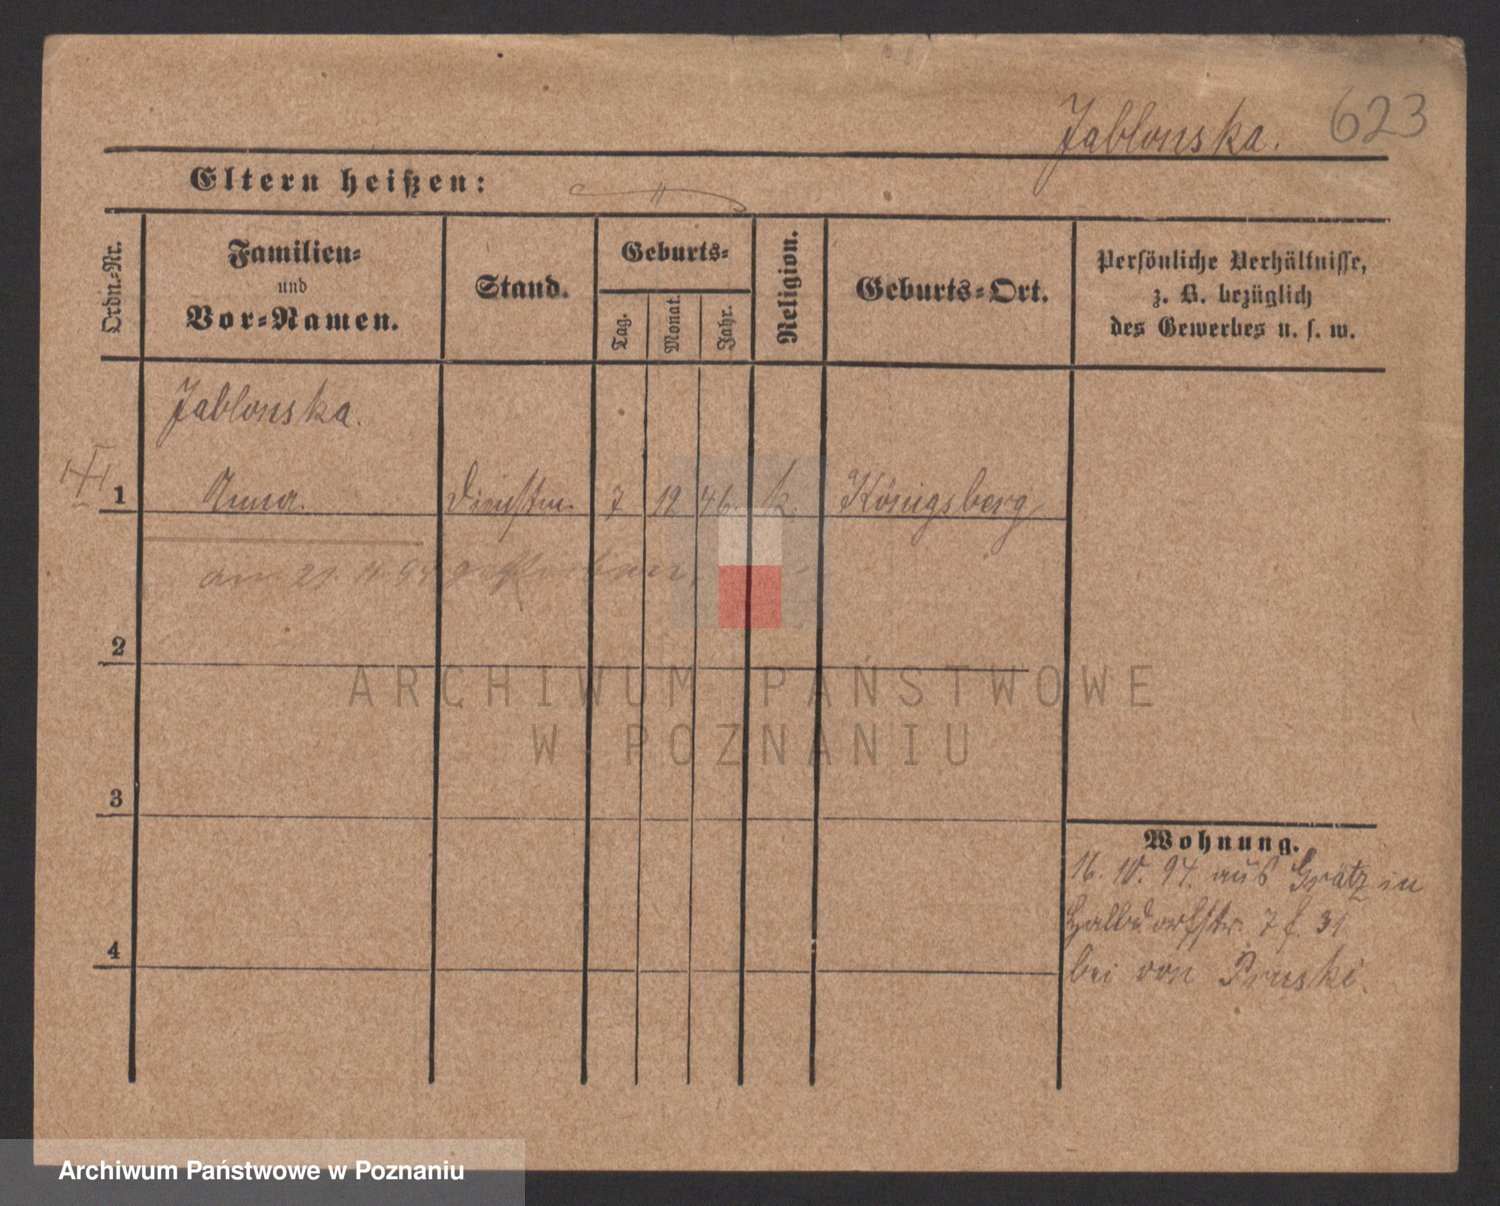 Jablonska. 623
Eltern heißen:
Ordn.-Nr.
Familien-
und
Vor-Namen.
Stand.
Geburts-
Tag.
Monat.
Jahr.
Religion.
Geburts-Ort.
Persönliche Verhältnisse,
z. B. bezüglich
des Gewerbes u. s. w.
Jablonska.
1 Anna. Dienstm. 7 12 46. k. Königsberg
am 21. 11. 94 gestorben,
2
ARCHIWUM PAŃSTWOWE
W POZNANIU
3
Wohnung.
16. 10. 94. aus Grätz in
Halbdorfstr. 7 f. 31
4
bei von Pruski.
Archiwum Państwowe w Poznaniu